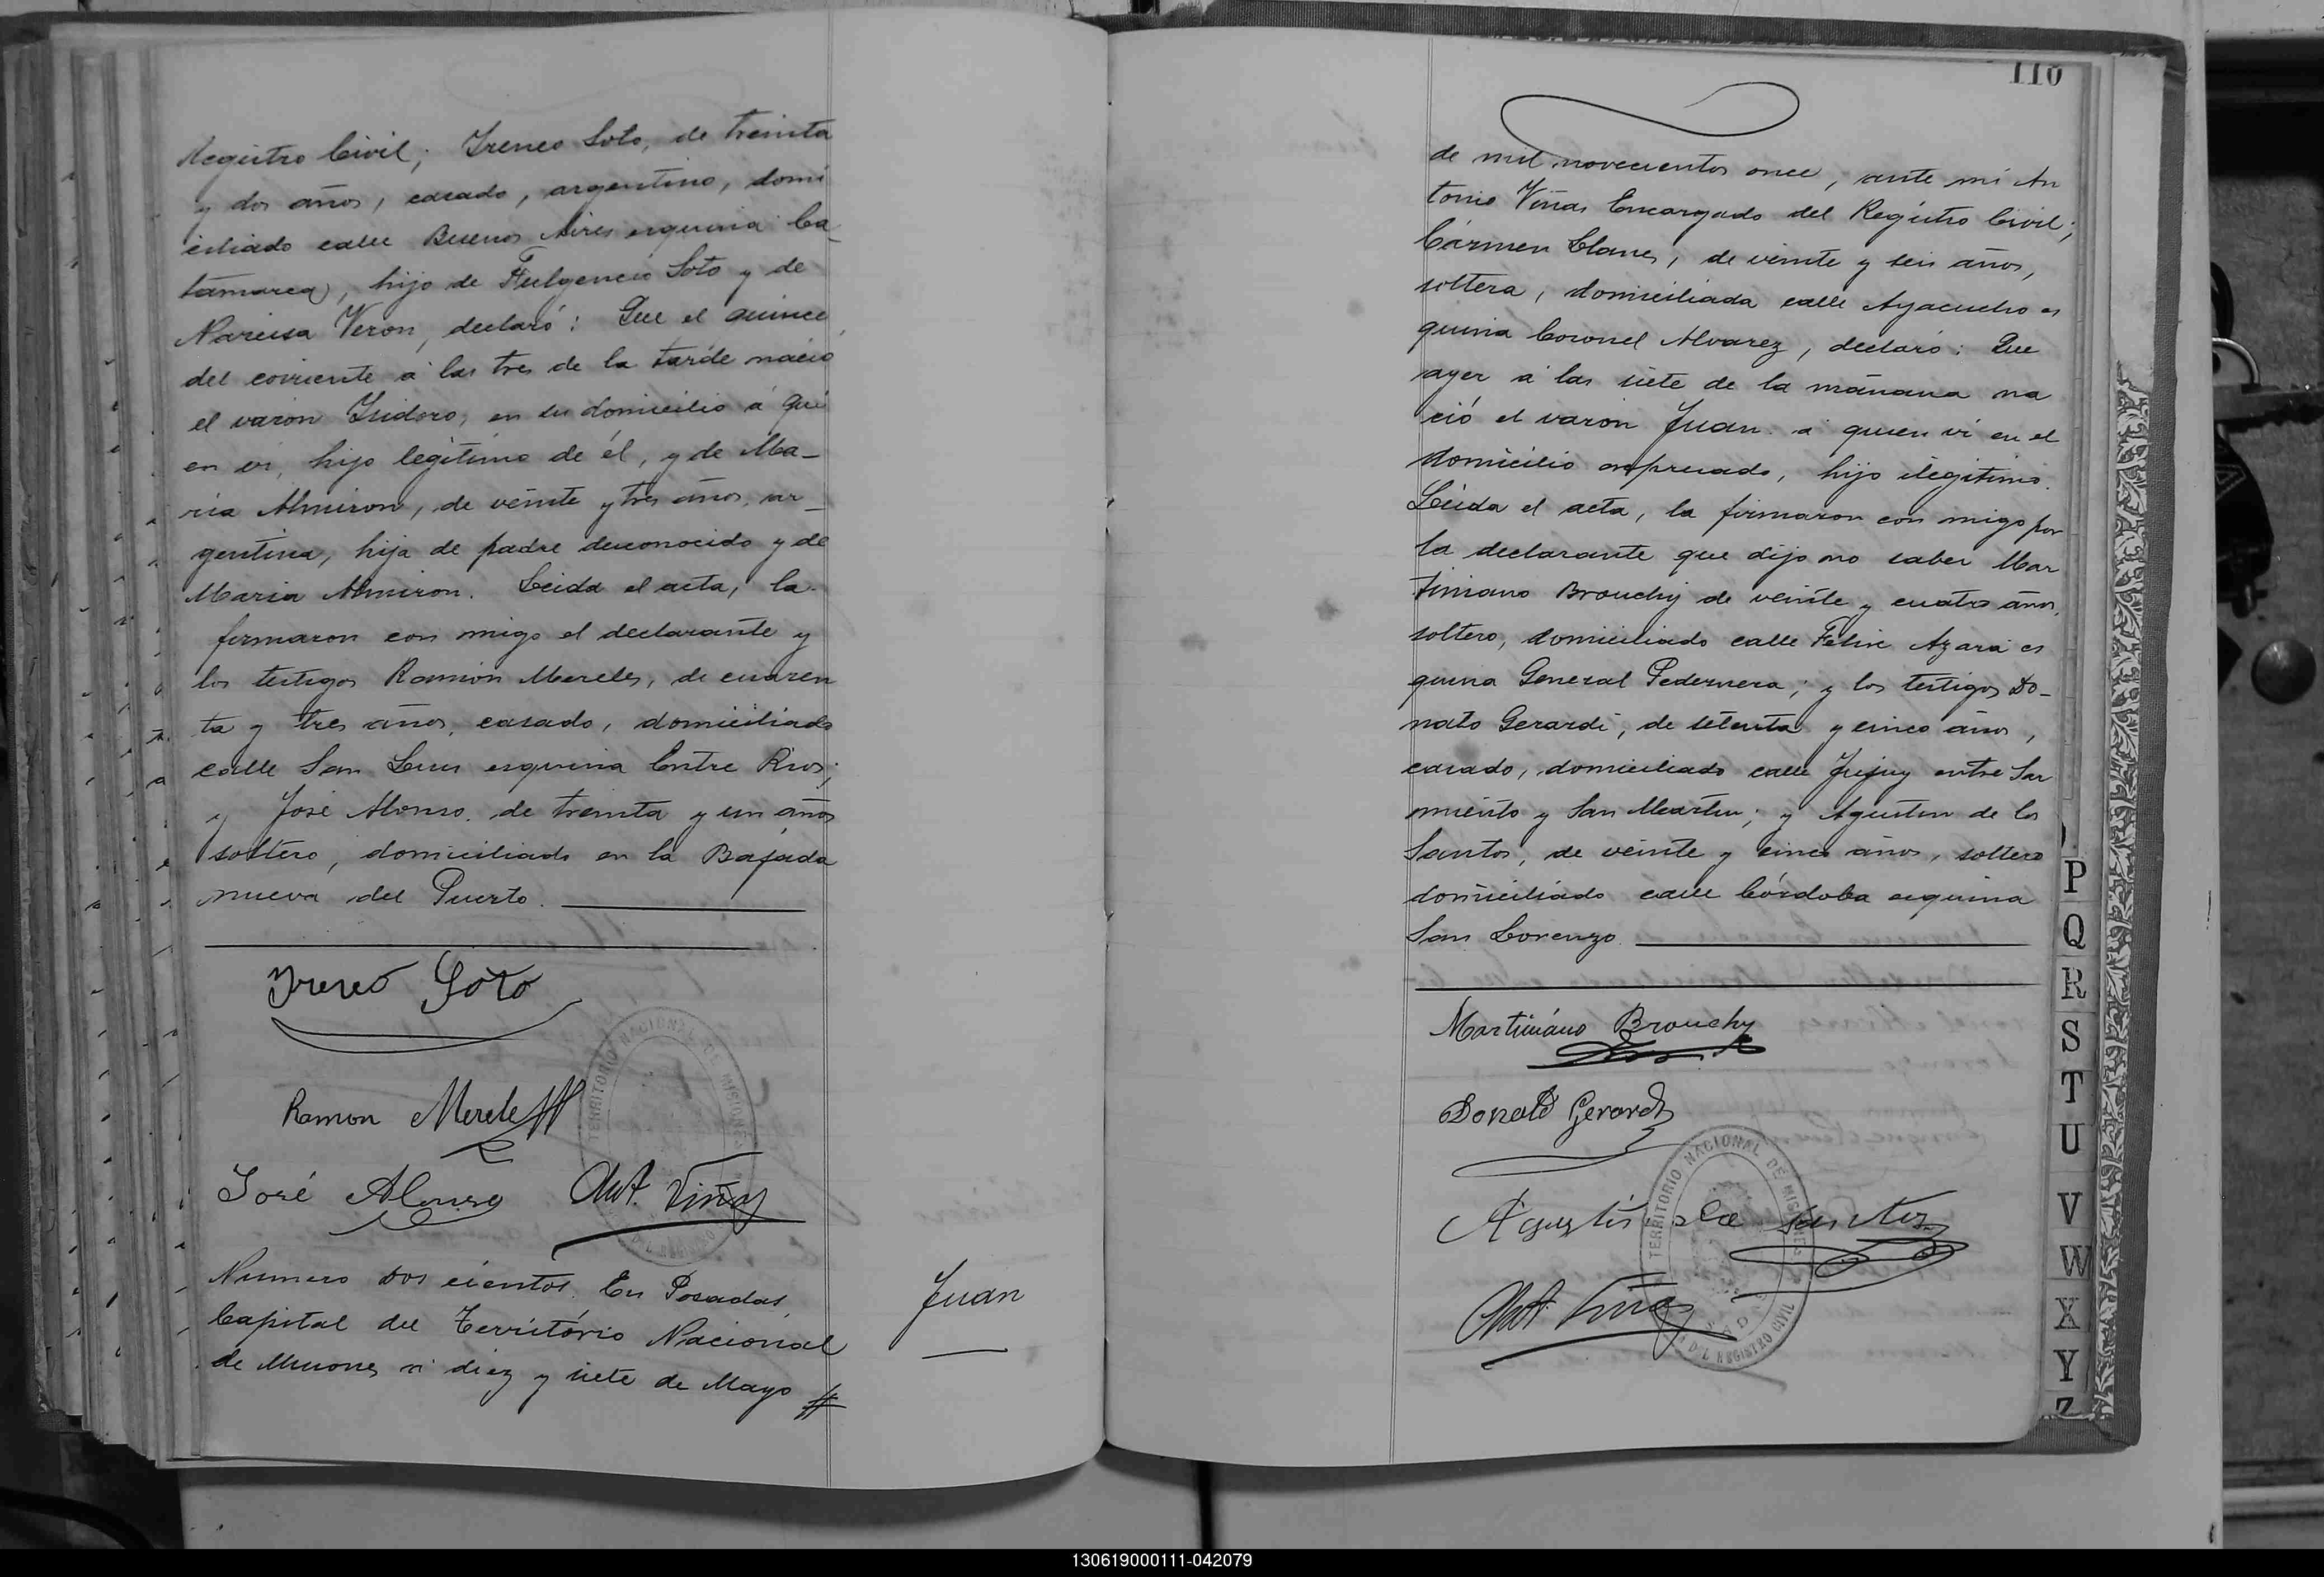 Registro Civil; Ireneo Soto, de treinta
y dos años, casado, argentino, domi
ciliado calle Buenos Aires esquina Ca_
tamarca, hijo de Fulgencio Soto y de
Narcisa Veron, declaró: Que el quince
del corriente á las tres de la tarde nació
el varon Isidoro, en su domicilio á qui
en vi, hijo legítimo de él, y de Ma_
ria Almiron, de veinte y tres años, ar_
gentina, hija de padre desconocido y de
Maria Almiron. Leida el acta, la
firmaron con migo el declarante y
los testigos Ramón Mereles, de cuaren
ta y tres años, casado, domiciliado
calle San Luis esquina Entre Rios;
y José Alonso, de treinta y un años
soltero, domiciliado en la Bajada
nueva del Puerto.
Ireneo Soto
Ramon Mereles
José Alonso Ant. Viñas
TERRITORIO NACIONAL DE MISIONES
DEL REGISTRO
Numero dos cientos. En Posadas,
Capital del Território Nacional
de Misiones á diez y siete de Mayo #
Juan
110
de mil novecientos once, ante mi An
tonio Viñas Encargado del Registro Civil;
Cármen Llanes, de veinte y seis años,
soltera, domiciliada calle Ayacucho es
quina Coronel Alvarez, declaró: Que
ayer á las siete de la mañana na
ció el varon Juan á quien vi en el
domicilio expresado, hijo ilegitimo.
Leida el acta, la firmaron con migo por
la declarante que dijo no saber Mar
tiniano Brouchy de veinte y cuatro años,
soltero, domiciliado calle Felix Azara es
quina General Pedernera; y los testigos Do_
nato Gerardi, de setenta y cinco años,
casado, domiciliado calle Jujuy entre Sar
miento y San Martin; y Agustin de los
Santos, de veinte y cinco años, soltero
domiciliado calle Córdoba esquina
San Lorenzo.
Martiniano Brouchy
Donato Gerardi
Agustin de los Santos
Ant. Viñas
TERRITORIO NACIONAL DE MISIONES
DEL REGISTRO CIVIL
P
Q
R
S
T
U
V
W
X
Y
Z
130619000111-042079